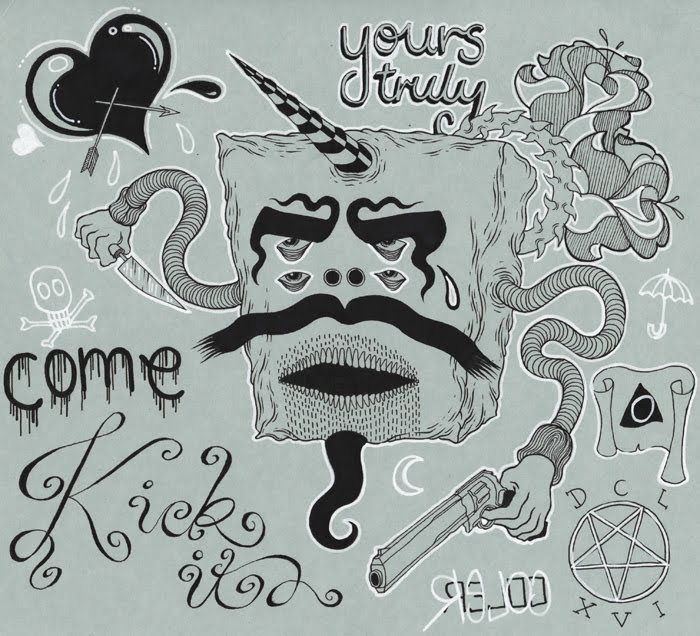 yours
truly
come
Kick
it
DCL
XVI